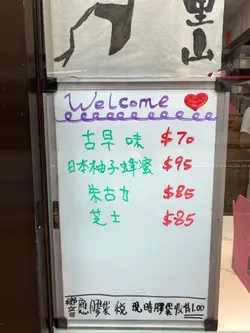 里山
Welcome
古早味 $70
日本柚子蜂蜜 $95
朱古力 $85
芝士 $85
響應膠袋稅 現時膠袋收$1.00